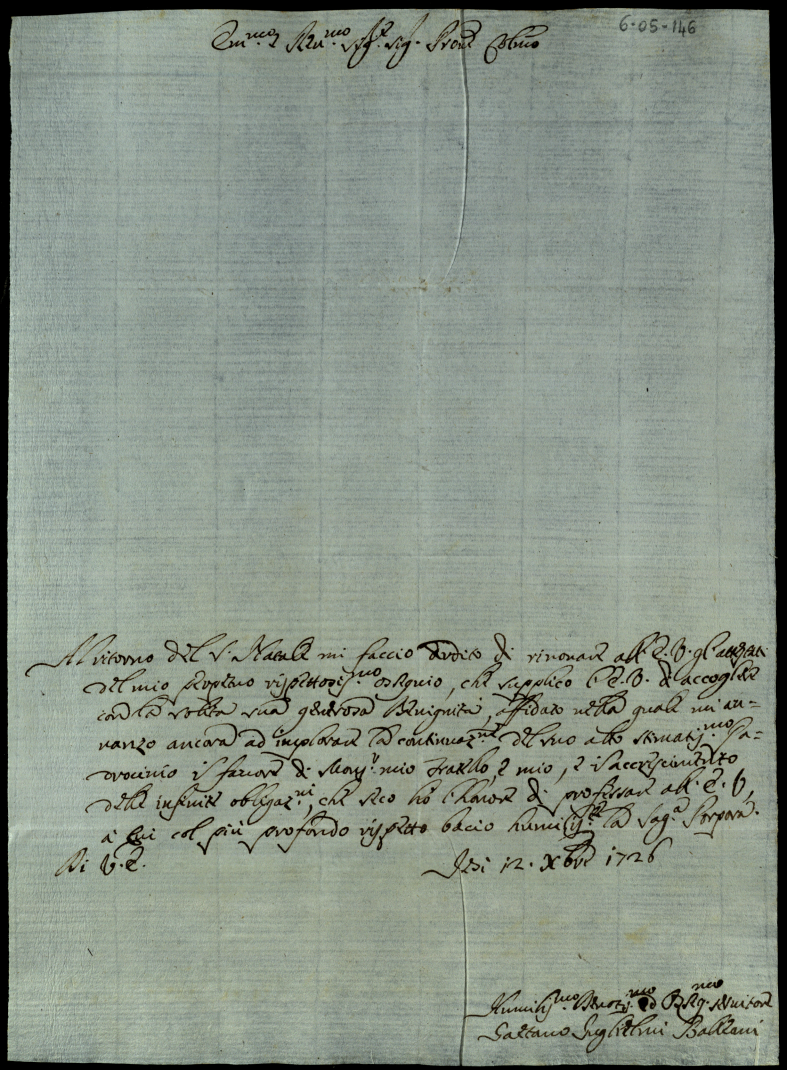 6-05-146
Em.mo e Re.mo Sig.r Sig. Pron Colmo
Al ritorno del S. Natale mi faccio ardito di rinovare all' E. V. gl' attestati
del mio rispettosis.mo osequio, che supplico l' E. V. d' accogliere
con la solita sua generosa Benignità, affidato nella quale mi au=
vanzo ancora ad implorare la continuaz.ne del suo alto stimatis.mo Pa=
drocinio in favore di Mons.r mio Fratello, e mio, e l' accrescimento
delle infinite obligaz.ni, che seco hò l' honore di professare all' E. V.,
a cui col più profondo rispetto bacio humilis.te la Sag.a Porpora.
Di V. E. Jesi 12. Xbre 1726
Humilis.mo Devotis.mo ed Oblig.mo servitore
Gaetano Guglielmi Balleani